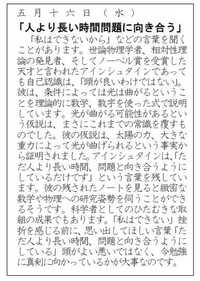 五月十六日(水)
「人より長い時間問題に向き合う」
「私はできないから」などの言葉を聞く
ことがあります。世論物理学者、相対性理
論の発見者、そしてノーベル賞を受賞した
天才と言われたアインシュタインであって
も自己認識は、「頭が良いわけではない」。
彼は、条件によっては光は曲がるというこ
とを理論的に数学、数字を使った式で説明
しています。光が曲がる可能性があるとい
う彼の仮説は、まさにこれまでの常識を覆すも
のでした。彼の仮説は、太陽の力、大きな
重力によって光が曲げられるという事実か
ら証明されました。アインシュタインは、「た
だ人より長い時間、問題と向き合うように
しているだけです」という言葉を残してい
ます。彼の残されたノートを見ると緻密な
数学や物理への研究姿勢を伺うことができ
るそうです。科学者としてのひたむきな取
組の成果でもあります。「私はできない」挫
折を感じる前に、思い出してほしい言葉「た
だ人より長い時間、問題と向き合うように
している」頭がよい悪いではなく、今勉強
に真剣に向かっているかが大事なのです。